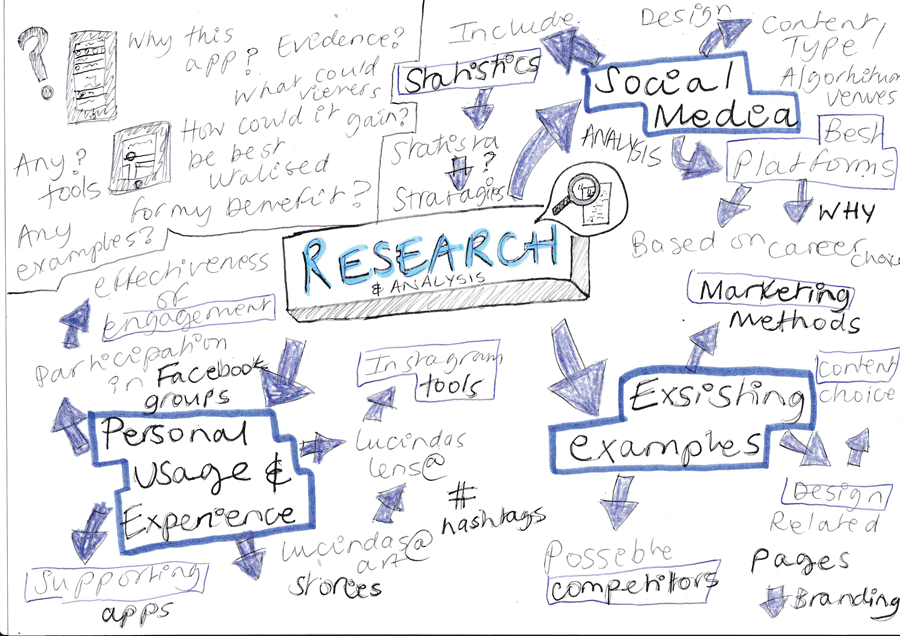 Why this
app? Evidence?
What could
viewers
gain?
How could it
be best
utalised
for my benefit?
Any?
tools
Any
examples?
Include
Statistics
Statista
?
Stratagies
Design
Content/
Type
Algorhitum
venues
Social
Media
ANALYSIS
Best
Platforms
WHY
Based on career
choice
RESEARCH
& ANALYSIS
effectiveness
of
engagement
Participation
in Facebook
groups
Personal
usage &
Experience
Supporting
apps
Instagram
tools
Lucindas
lens@
#
hashtags
Lucindas@
art
stories
Marketing
Methods
Exsisting
examples
content
choice
Design
Related
Pages
Branding
Possebile
competitors